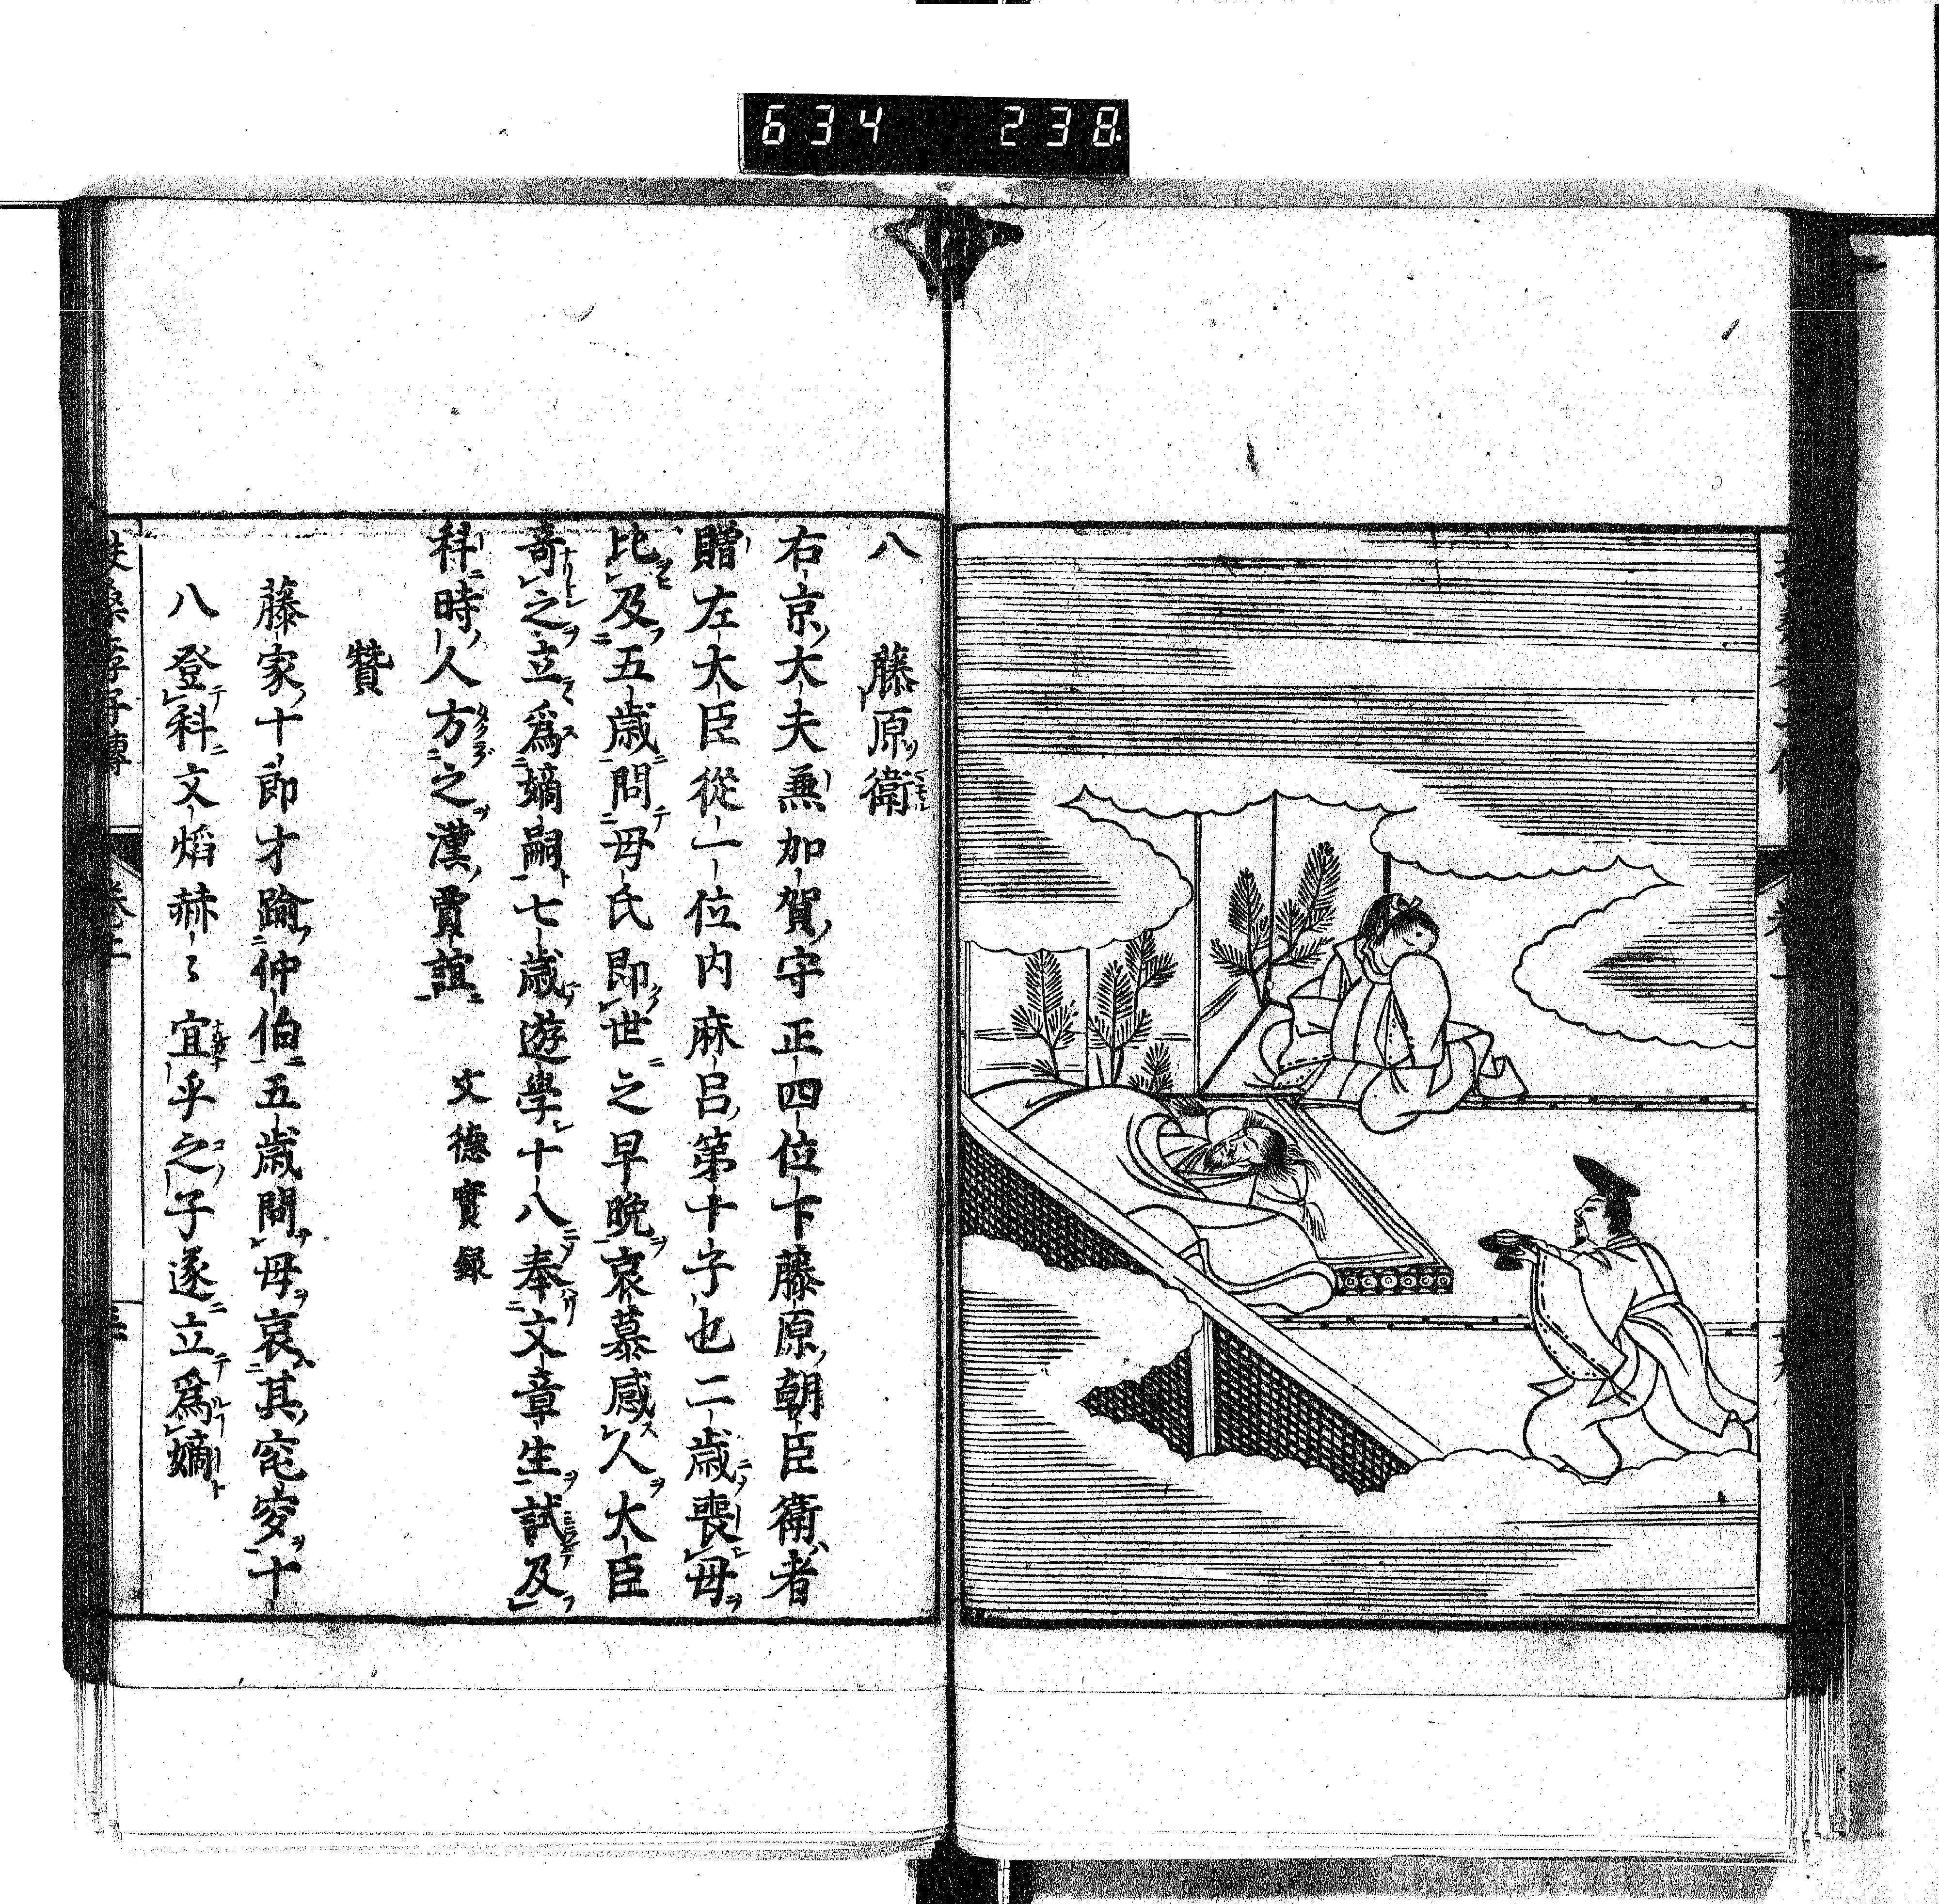 634 238
八 藤原衛
右京大夫兼加賀守正四位下藤原朝臣衛者
贈左大臣從一位内麻呂第十子也二歳喪母
比及五歳問母氏即世之早晩哀慕感人大臣
奇之立爲嫡嗣七歳遊學十八奉文章生試及
科時人方之漢賈誼 文德實録
贊
藤家十郎才踰仲伯五歳問母哀其窀穸十
八登科文焰赫〻宜乎之子遂立爲嫡